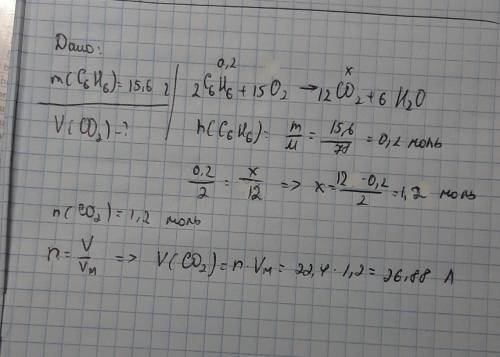 Дано:
m(C₆H₆)=15,6 г
V(CO₂)-?
0,2 x
2C₆H₆+15O₂→12CO₂+6H₂O
n(C₆H₆)= m/M = 15,6/78 = 0,2 моль
0,2/2 = x/12 => x= 12·0,2/2 =1,2 моль
n(CO₂)=1,2 моль
n= V/Vм => V(CO₂)=n·Vм= 22,4·1,2= 26,88 л